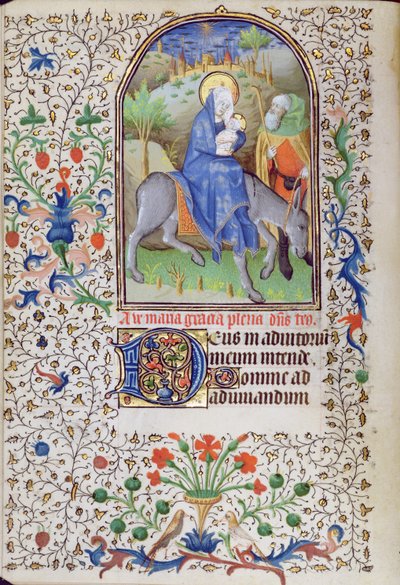 Ave maria gracia plena dns teo.
Deus in adiutoriu
meum intende
Domine ad
adiuuandum